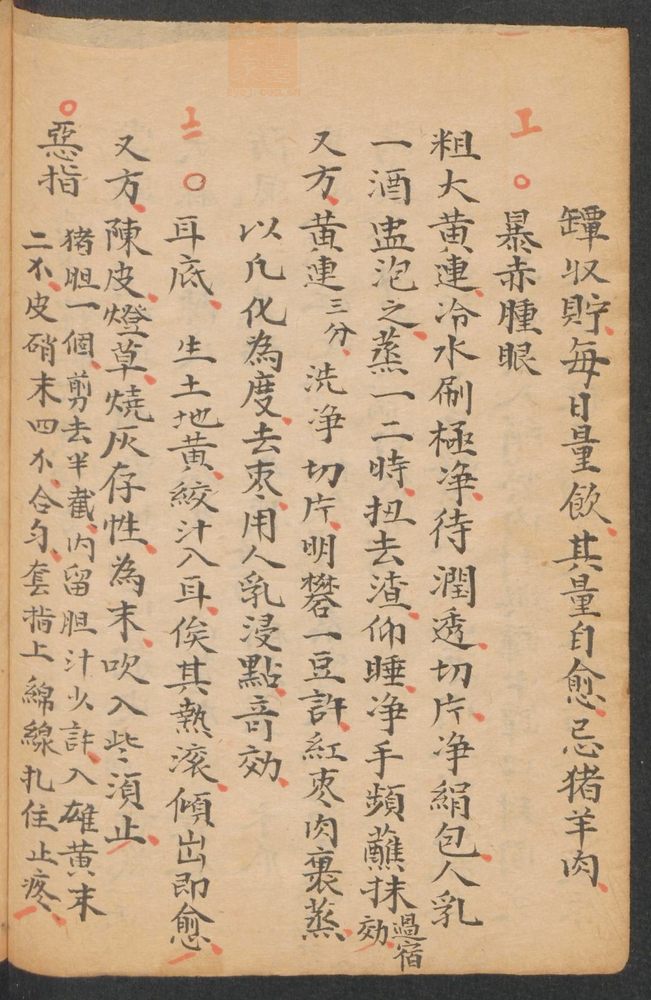 罈収貯每日量飲其量自愈忌猪羊肉
工
暴赤腫眼
粗大黄連冷水刷極净待潤透切片净絹包人乳
一酒盅泡之蒸一二時扭去渣仰睡净手頻蘸抹過宿効
又方黄連三分洗净切片明礬一豆許紅枣肉裹蒸
以凡化為度去枣用人乳浸點奇効
耳底 生土地黄絞汁入耳俟其熱滚傾出即愈
又方陳皮燈草燒灰存性為末吹入些須止
惡指
猪胆一個剪去半截内留胆汁少許入雄黄末
二不皮硝末四不合匀套指上綿線扎住止疼